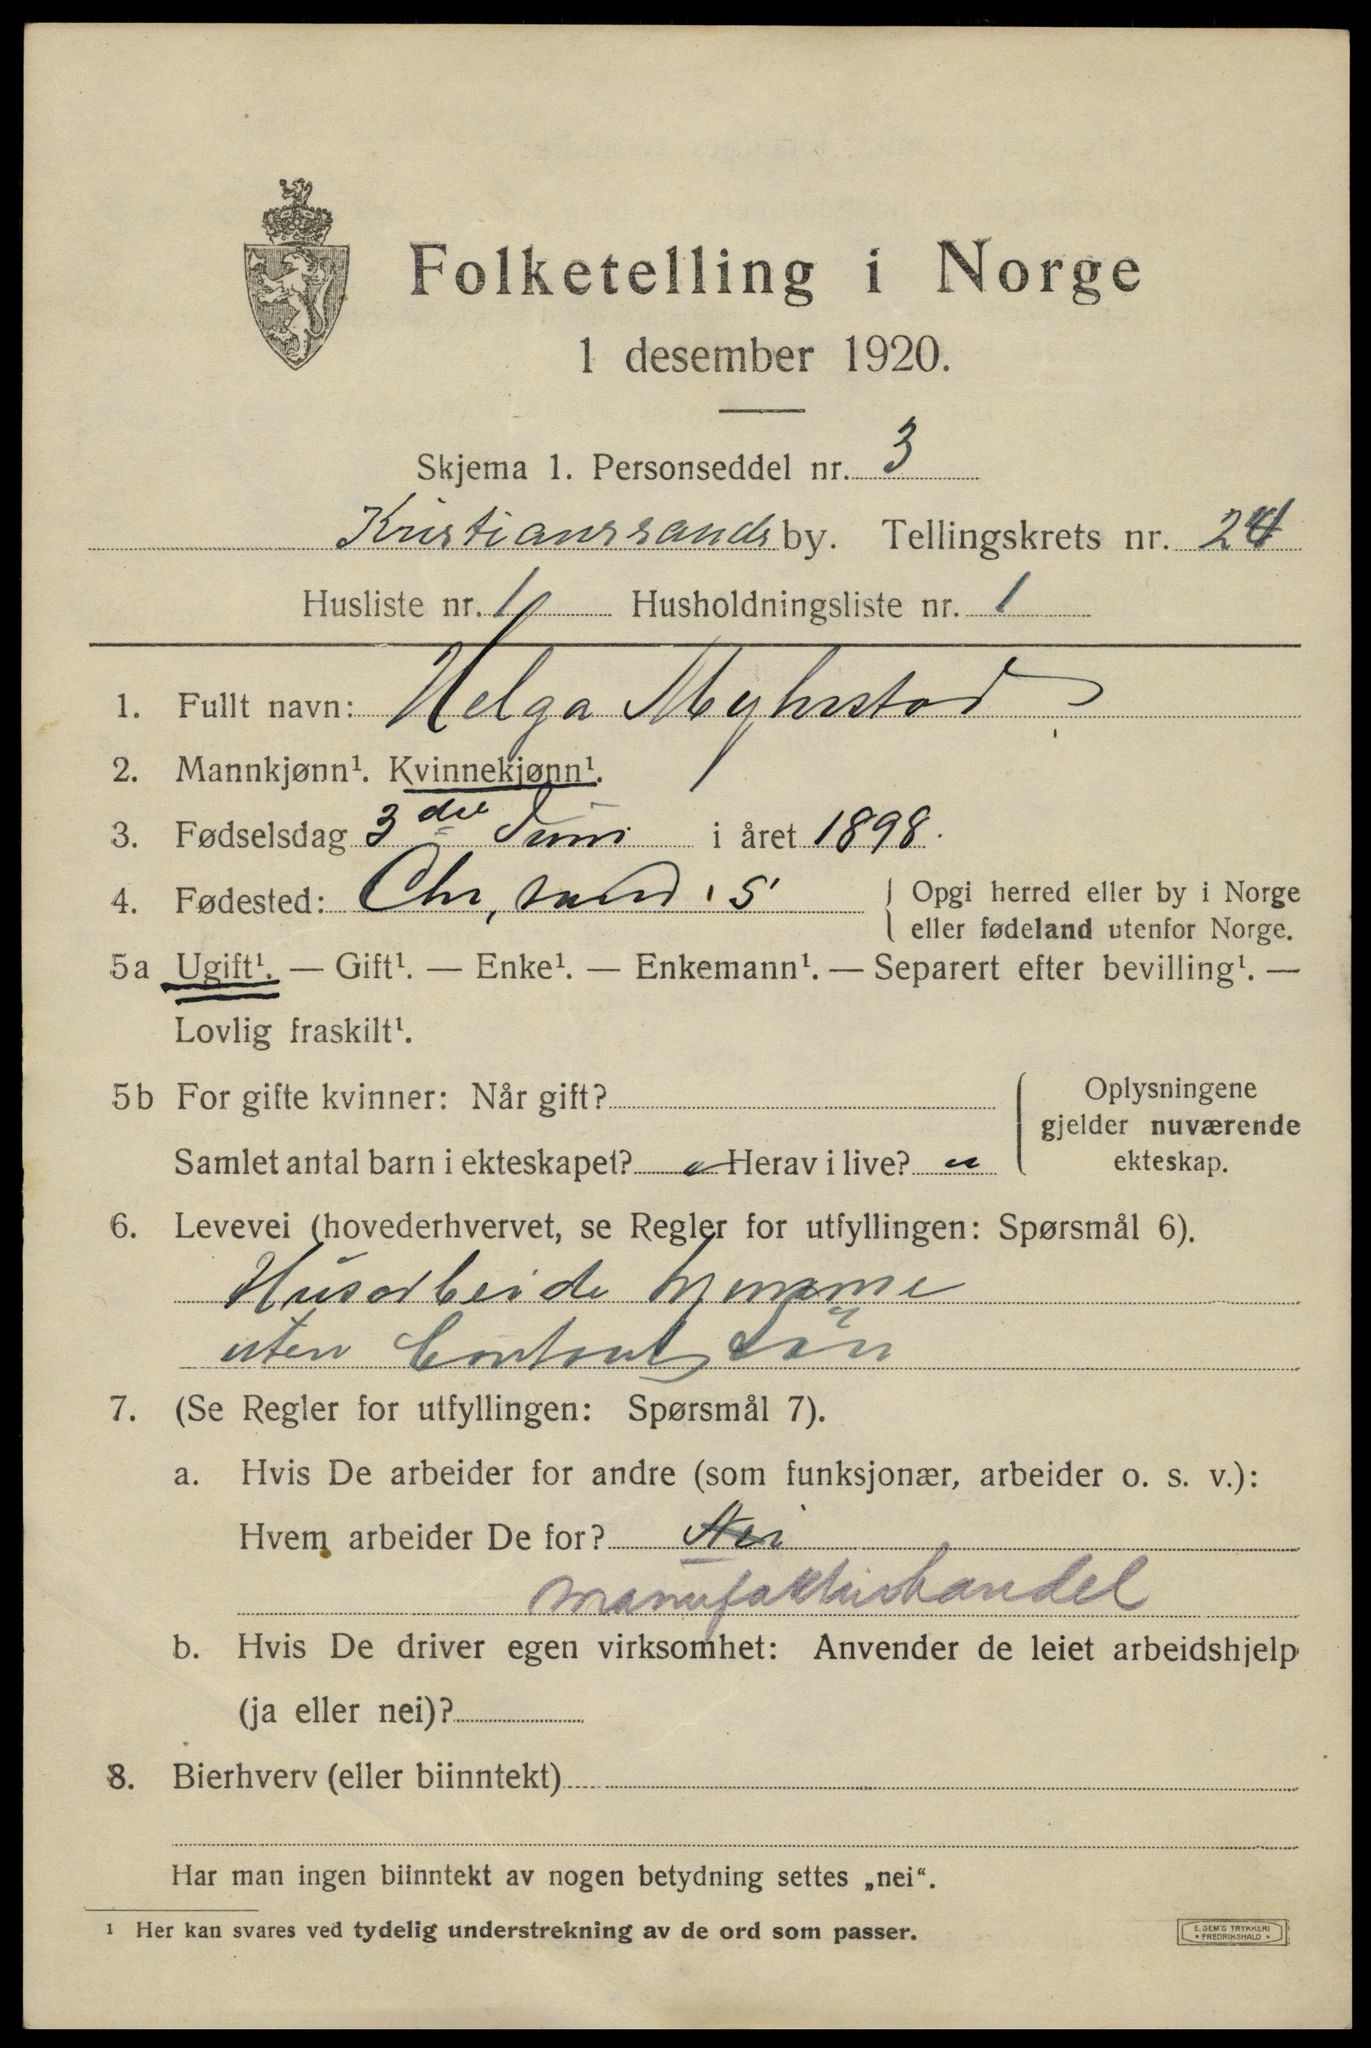 Folketelling i Norge
1 desember 1920.
Skjema 1. Personseddel nr. 3
Kristianssands by. Tellingskrets nr. 24
Husliste nr. 1 Husholdningsliste nr. 1
1. Fullt navn: Helga Myhrstad
2. Mannkjønn¹. Kvinnekjønn¹.
3. Fødselsdag 3die Juni i året 1898.
4. Fødested: Chr,sand S { Opgi herred eller by i Norge
eller fødeland utenfor Norge.
5a Ugift¹. — Gift¹. — Enke¹. — Enkemann¹. — Separert efter bevilling¹. —
Lovlig fraskilt¹.
5b For gifte kvinner: Når gift? { Oplysningene
gjelder nuværende
Samlet antal barn i ekteskapet? " Herav i live? " ekteskap.
6. Levevei (hovederhvervet, se Regler for utfyllingen: Spørsmål 6).
Husarbeide hjemme
uten Contant Lön
7. (Se Regler for utfyllingen: Spørsmål 7).
a. Hvis De arbeider for andre (som funksjonær, arbeider o. s. v.):
Hvem arbeider De for? Nei
manufakturhandel
b. Hvis De driver egen virksomhet: Anvender de leiet arbeidshjelp
(ja eller nei)?
8. Bierhverv (eller biinntekt)
Har man ingen biinntekt av nogen betydning settes „nei“.
¹ Her kan svares ved tydelig understrekning av de ord som passer.
E. SEM'S TRYKKERI
* FREDRIKSHALD *